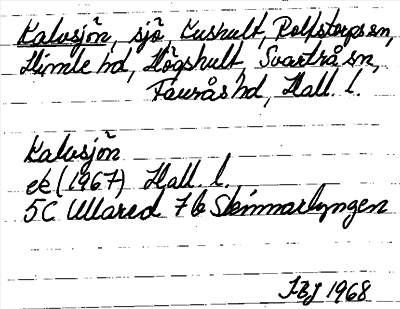 Kalvsjön, sjö, Cushult, Rolfstorps sn,
Himle hd, Högshult, Svartrå sn,
Faurås hd, Hall. l.
Kalvsjön
ek (1967) Hall. l.
5C Ullared 7b Skinnarlyngen
1968